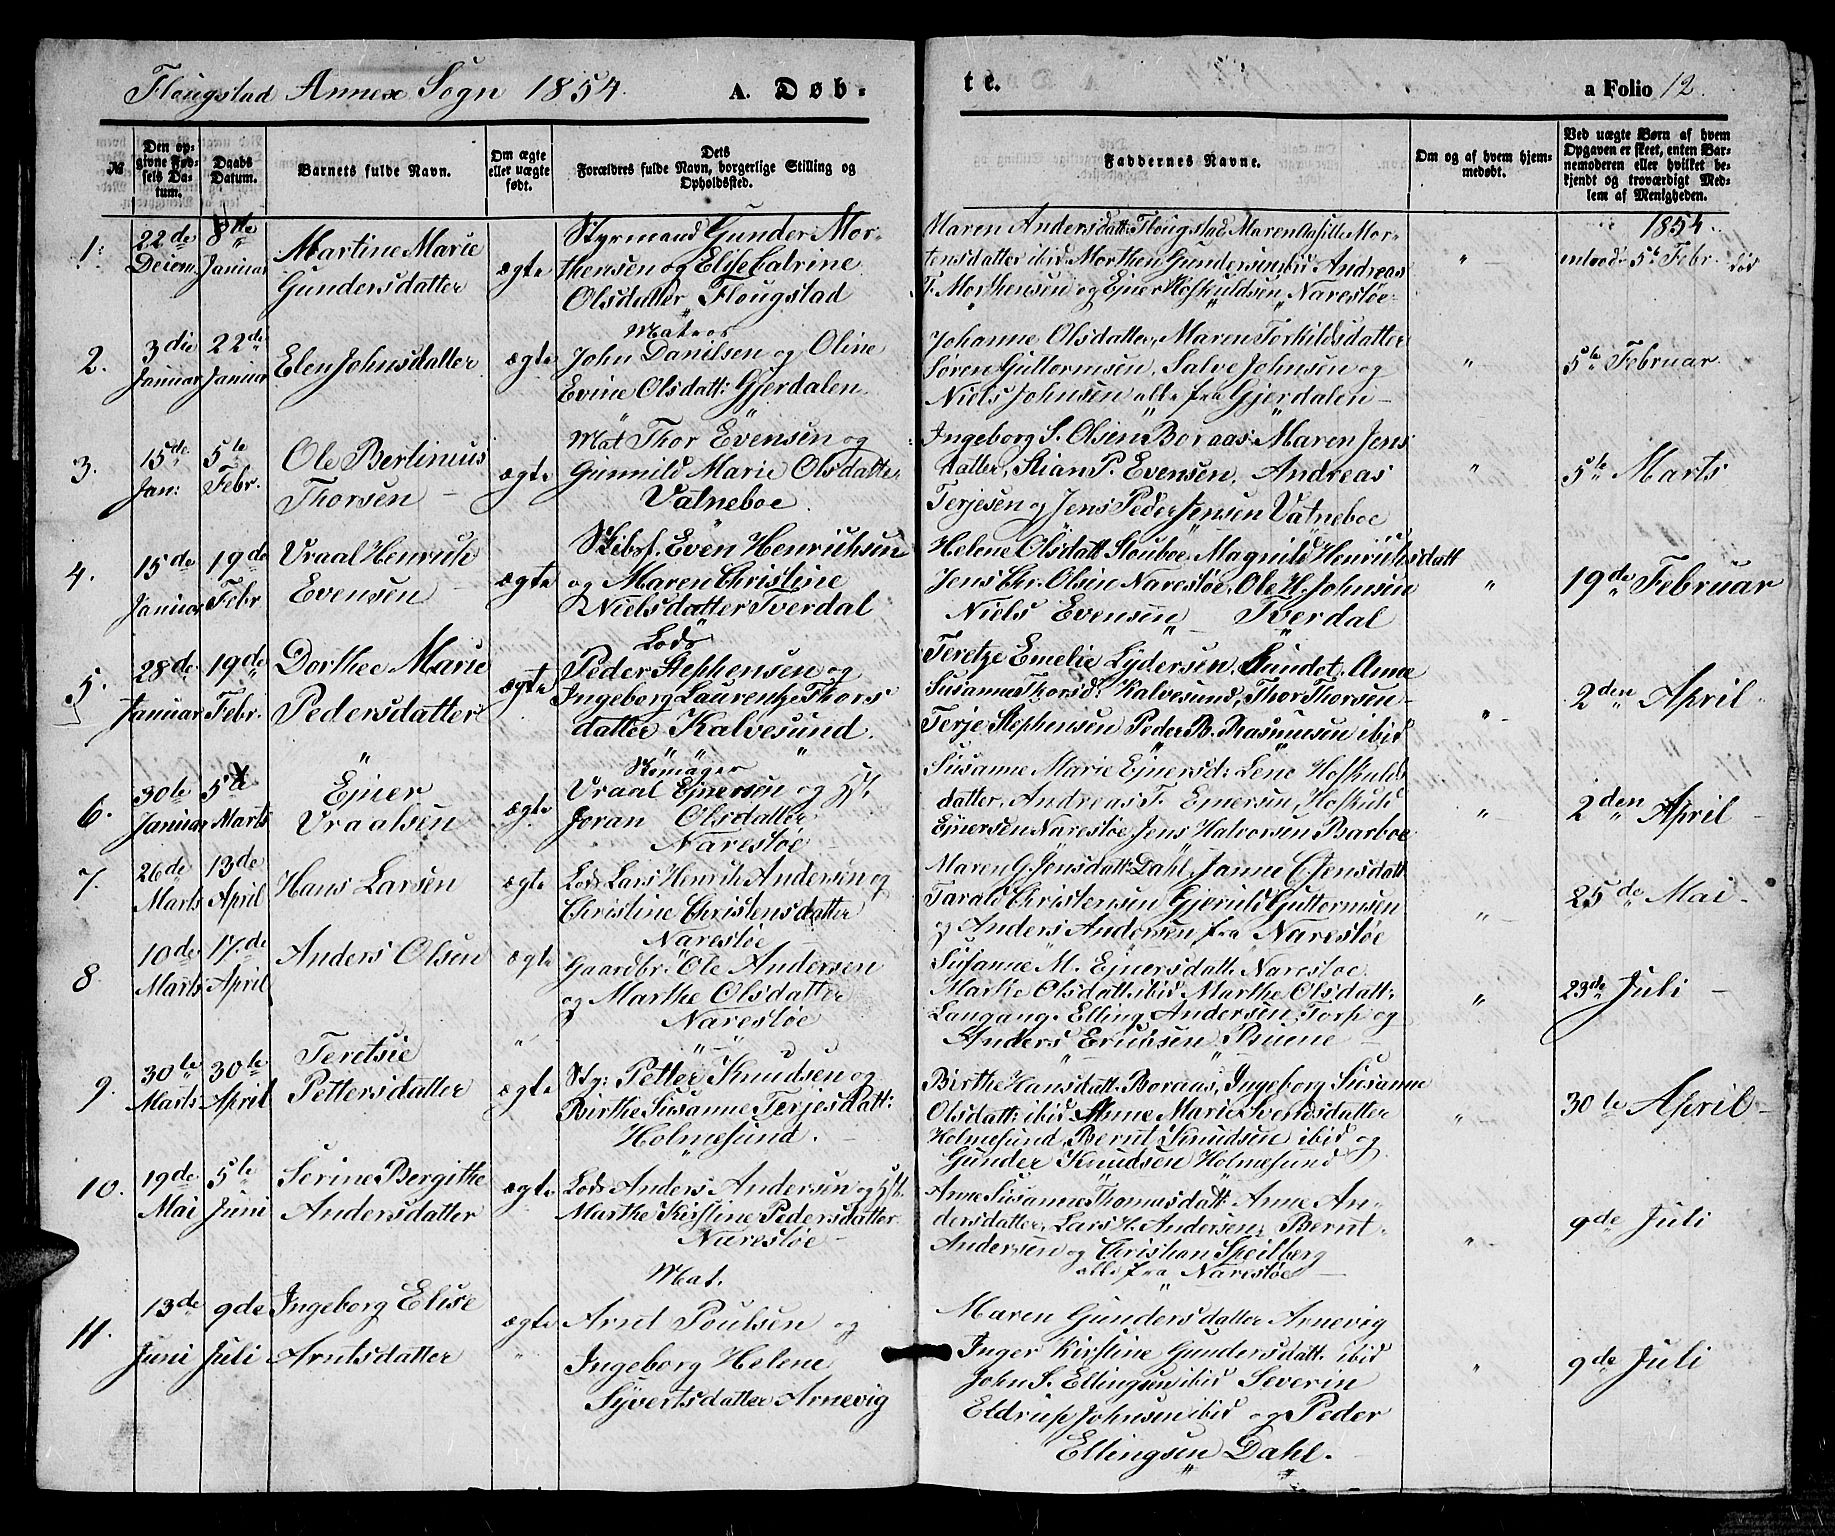 Flougstad Annex Sogn 1854. A. Døb-
te. a Folio 12.
№
Den op-
givne Fød-
sels Da-
tum.
Daabs
Datum.
Barnets fulde Navn.
Om ægte
eller uægte
født.
Dets
Forældres fulde Navn, borgerlige Stilling og
Opholdssted.
Faddernes Navne.
Om og af hvem hjem-
medøbt.
Ved uægte Børn af hvem
Opgaven er skeet, enten Bar-
nemoderen eller hvilket be-
kjendt og troværdigt Med-
lem af Menigheden.
1.
22de
Decem.
8de
Januar
Martine Marie
Gundersdatter
ægte
Styrmand Gunder Mor-
thensen og Elise Catrine
Olsdatter Flougstad
Maren Andersdatt: Flougstad Maren Mor-
tensdatter ibid Morthen Gundersen ibid Andreas
T. Morthensen og Ejner Hofkuldsen Narestøe
1854.
5te Febr.
2.
3die
Januar
22de
Januar
Elen Johnsdatter
ægte
Matros
John Danilsen og Oline
Evine Olsdatt: Gjerdalen
Johanne Olsdatter, Maren Torkildsdatter
Søren Guttormsen, Salve Johnsen og
Niels Johnsen alle fra Gjerdalen
5te Februar
3.
15de
Jan:
5te
Febr.
Ole Bertinius
Thorsen
ægte
Mat Thor Evensen og
Gunnild Marie Olsdatter
Vatneboe
Ingeborg S. Olsen Boraas Maren Jens
datter, Stian P. Evensen, Andreas
Terjesen og Jens Peder Jensen Vatneboe
5te Marts
4.
15de
Januar
19de
Febr
Vraal Henrich
Evensen
ægte
Skibsf. Even Henrichsen
og Maren Christine
Nielsdatter Tverdal
Helene Olsdatt Stouboe Magnild Henrichsdatt
Jens Chr. Olsen Narestøe, Ole H. Johnsen
Niels Evensen Tverdal
19de Februar
5.
28de
Januar
19de
Febr.
Dorthee Marie
Pedersdatter
ægte
Lods
Peder Stephensen og
Ingeborg Laurentze Thors
datter Kalvesund.
Teretze Emelie Lydersen, Sundet, Anne
Susanne Thorsd: Kalvesund, Thor Thorsen
Terje Stephensen Peder B. Rasmusen ibid
2den April
6.
30te
Januar
5te
Marts
Ejner
Vraalsen
ægte
Skomager
Vraal Ejnersen og Hst.
Joran Olsdatter
Narestøe
Susanne Marie Ejnersd: Lene Hofkulds
datter, Andreas T. Ejnersen, Hofkuld
Ejnersen Narestøe Jens Halvorsen Barboe
2den April
7.
26de
Marts
13de
April
Hans Larsen
ægte
Lods Lars Henrik Andersen og
Christine Christensdatter
Narestøe
Maren G. Jensdatt: Dahl, Janne C. Jensdatt
Tarald Christensen Gjeruld Guttormsen
og Anders Andersen fra Narestøe
25de Mai
8.
10de
Marts
17de
April
Anders Olsen
ægte
Gaardbr: Ole Andersen
og Marthe Olsdatter
Narestøe
Susanne M. Ejnersdatt. Narestøe
Marthe Olsdatt: ibid Marthe Olsdatt:
Langang. Elling Andersen Torp og
Anders Buene
23de Juli
9.
30te
Marts
30te
April
Teretsie
Pettersdatter
ægte
Sty: Petter Knudsen og
Birthe Susanne Terjesdatt:
Holmesund.
Birthe Hansdatt. Boraas, Ingeborg Susanne
Olsdatt: ibid Anne Marie Svendsdatter
Holmesund, Bernt Knudsen ibid og
Gunder Knudsen Holmesund
30te April
10.
19de
Mai
5te
Juni
Sørine Bergithe
Andersdatter
ægte
Lods Anders Andersen og Hst.
Marthe Kirstine Pedersdatter
Narestøe
Anne Susanne Thomasdatt. Anne An-
dersdatter, Lars H. Andersen, Bernt
Andersen og Christian Speilberg
alle fra Narestøe
9de Juli
11.
13de
Juni
9de
Juli
Ingeborg Elise
Arntsdatter
ægte
Mat.
Arnt Poulsen og
Ingeborg Helene
Syvertsdatter Arnevig
Maren Gundersdatter Arnevig
Inger Kirstine Gundersdatt. ibid
John S. Ellingsen ibid Severin
Eldrup Johnsen ibid og Peder
Ellingsen Dahl.
9de Juli